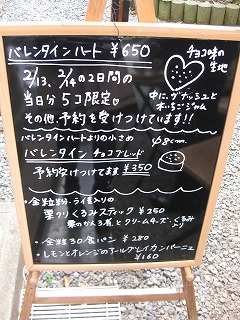 バレンタインハート ¥650
チョコ味の
生地
2/13、2/14の2日間の
当日分 5コ限定♡
中に、ガナッシュと
木いちごジャム
その他、予約を受けつけています!!
バレンタインハートよりの小さめ
φ8cm
バレンタイン チョコブレッド
予約受けつけてます ¥350
・全粒粉・ライ麦入りの
栗クリくるみスティック ¥250
栗のかんろ煮、とクリームチーズ、くるみ
入り
・全粒30食パン ¥280
・レモンとオレンジのオールグレイカンパーニュ
¥160